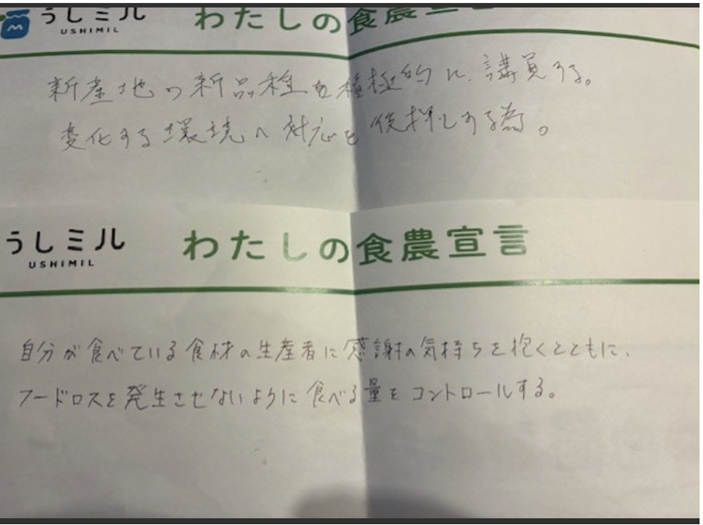 うしミル わたしの食農宣言
USHIMIL
新産地の新品種を積極的に、購買する。
変化する環境へ対応を後押しする為。
うしミル わたしの食農宣言
USHIMIL
自分が食べている食材の生産者に感謝の気持ちを抱くとともに、
フードロスを発生させないように食べる量をコントロールする。